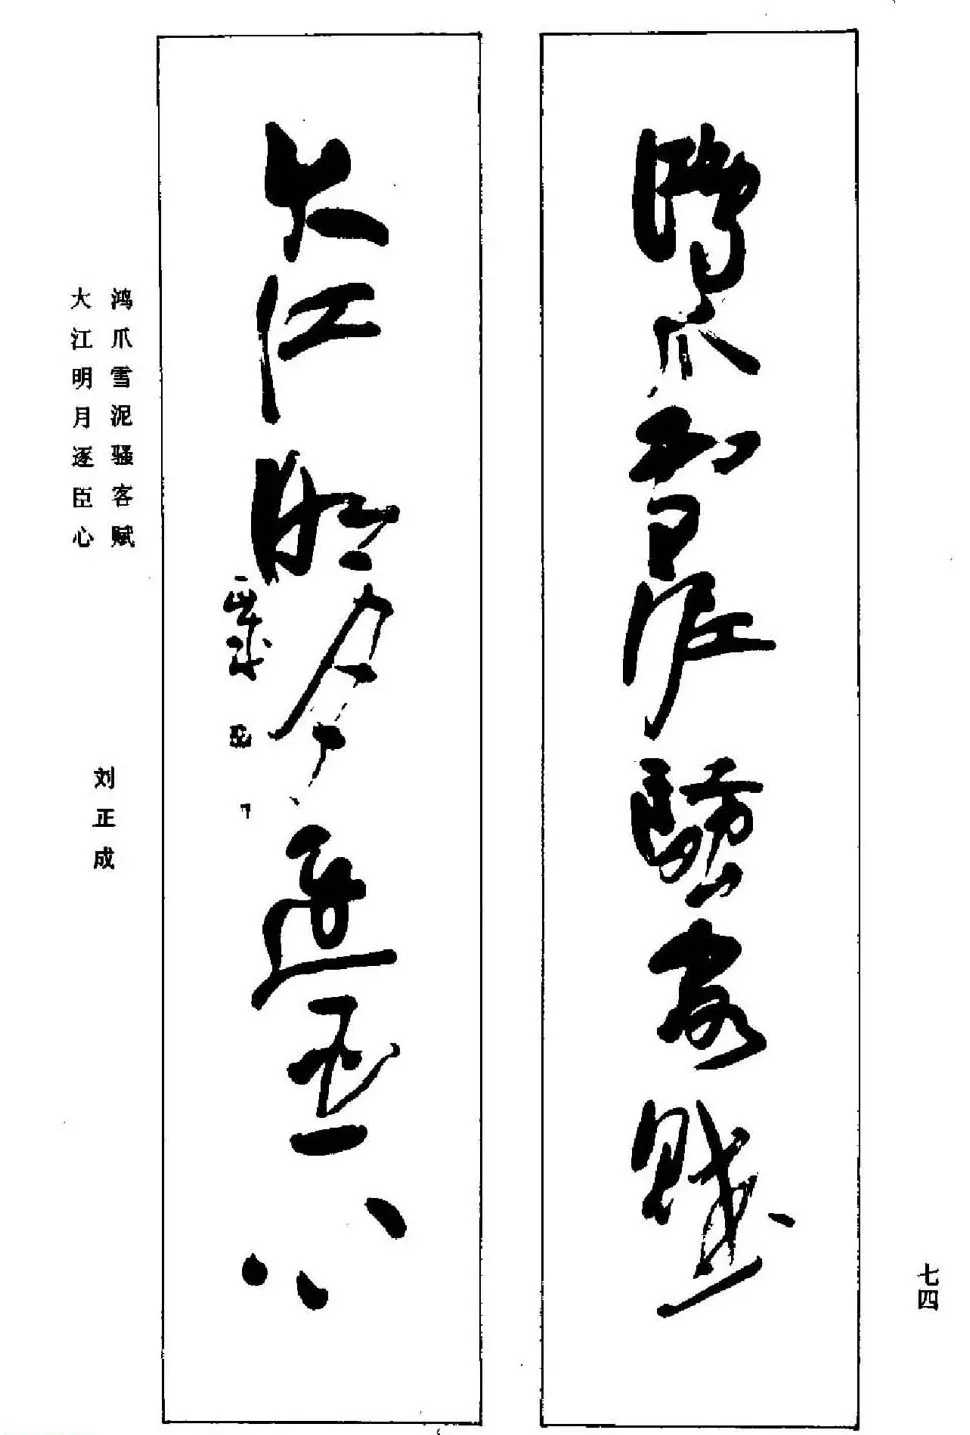 鴻爪雪泥騷客賦
大江明月逐臣心
正成
鸿爪雪泥骚客赋
大江明月逐臣心
刘正成
七四